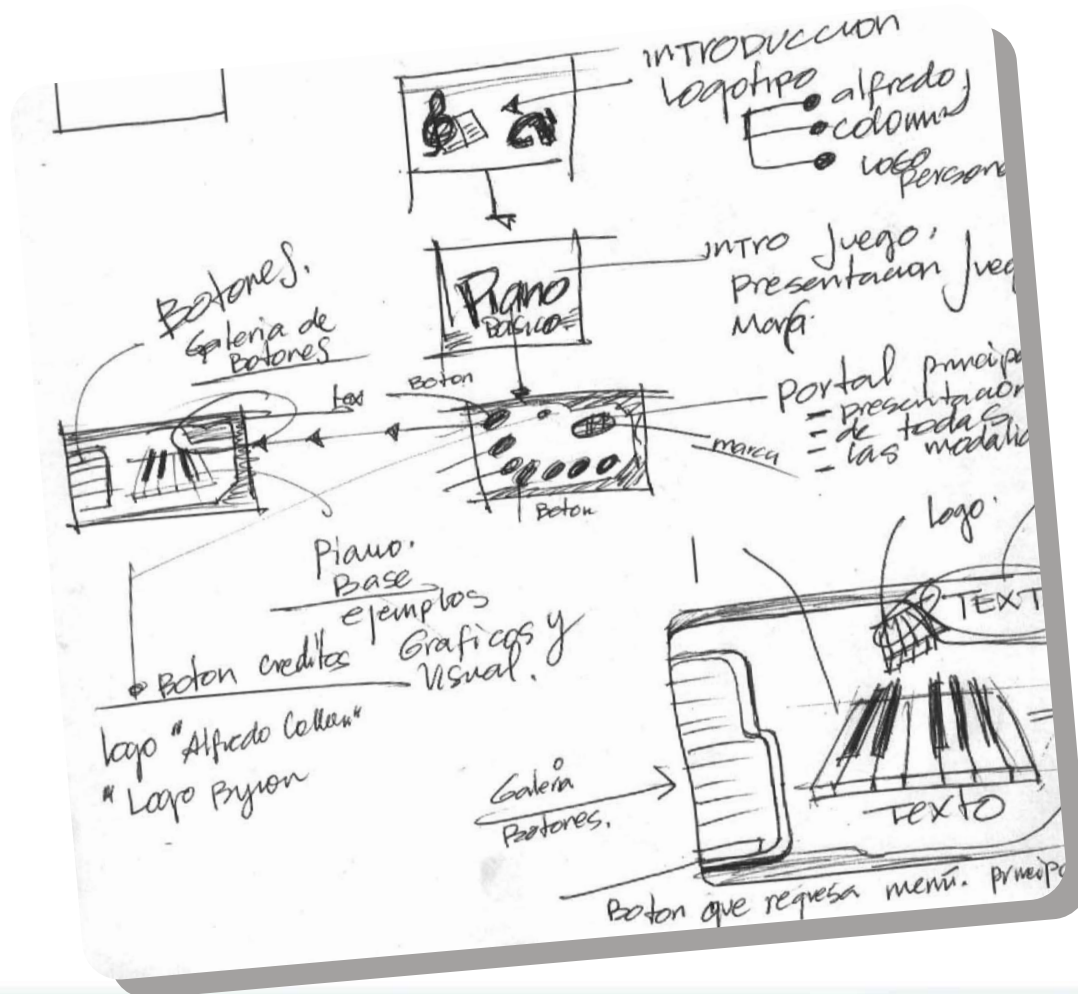 INTRODUCCION
Logotipo
alfredo
Logo
Persona
INTRO Juego.
Presentacion
Piano
BASICO
Botones.
Galeria de
Botones
Boton
tex
Portal principa
presentacion
de todas
las modali
marca
Boton
Logo
Piano.
Base
ejemplos
Graficos y
Visual.
TEXT
Boton creditos
Logo "Alfredo
" Logo Byron
Galeria
Botones.
TEXTO
Boton que regresa menú. principa